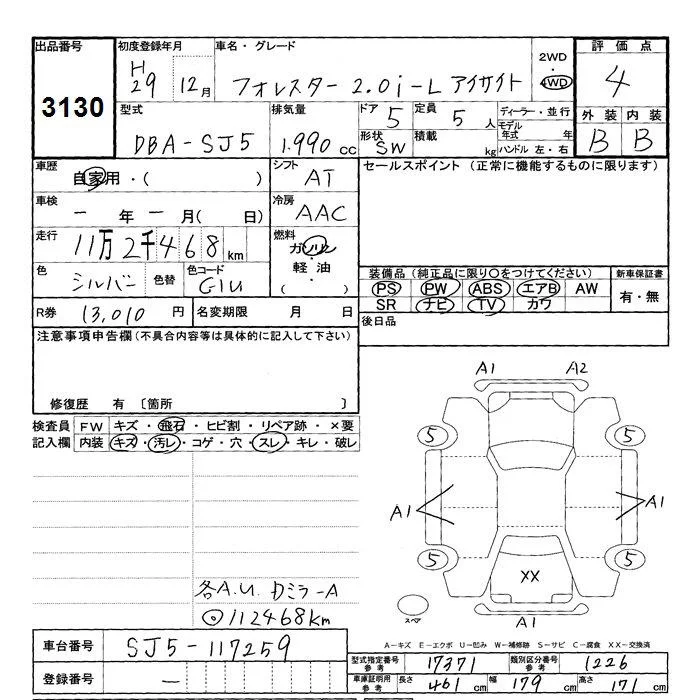 出品番号 初度登録年月 車名・グレード 2WD 評価点
3130 H29 12月 フォレスター 2.0i-L アイサイト ・ 4WD 4
型式 排気量 ドア 5 定員 5 人 ディーラー・並行 外装 内装
DBA-SJ5 1.990 cc 形状 SW 積載 kg モデル年式 年 B B
ハンドル 左・右
車歴 自家用・( ) シフト AT セールスポイント (正常に機能するものに限ります)
車検 ー年ー月( 日) 冷房 AAC
走行 11万2千468 km 燃料 ガソリン
軽油
( )
色 シルバー 色替 色コード G1U 装備品(純正品に限り○をつけてください) 新車保証書
PS PW ABS エアB AW 有・無
R券 13,010 円 名変期限 月 日 SR ナビ TV カワ
注意事項申告欄(不具合内容等は具体的に記入して下さい) 後日品
修復歴 有 〔箇所 〕
A1 A2
検査員 FW キズ・飛石・ヒビ割・リペア跡・×要
記入欄 内装 キズ・汚レ・コゲ・穴・スレ・キレ・破レ
5 5
A1 A1
5 5
XX
各A.U. Dミラ-A
◎112468km
スペア A1
車台番号 SJ5-117259 A-キズ E-エクボ U-凹み W-補修跡 S-サビ C-腐食 XX-交換済
型式指定番号 参考 17371 類別区分番号 参考 1226
登録番号 ー 車庫証明用 参考 長さ 461 cm 幅 179 cm 高さ 171 cm